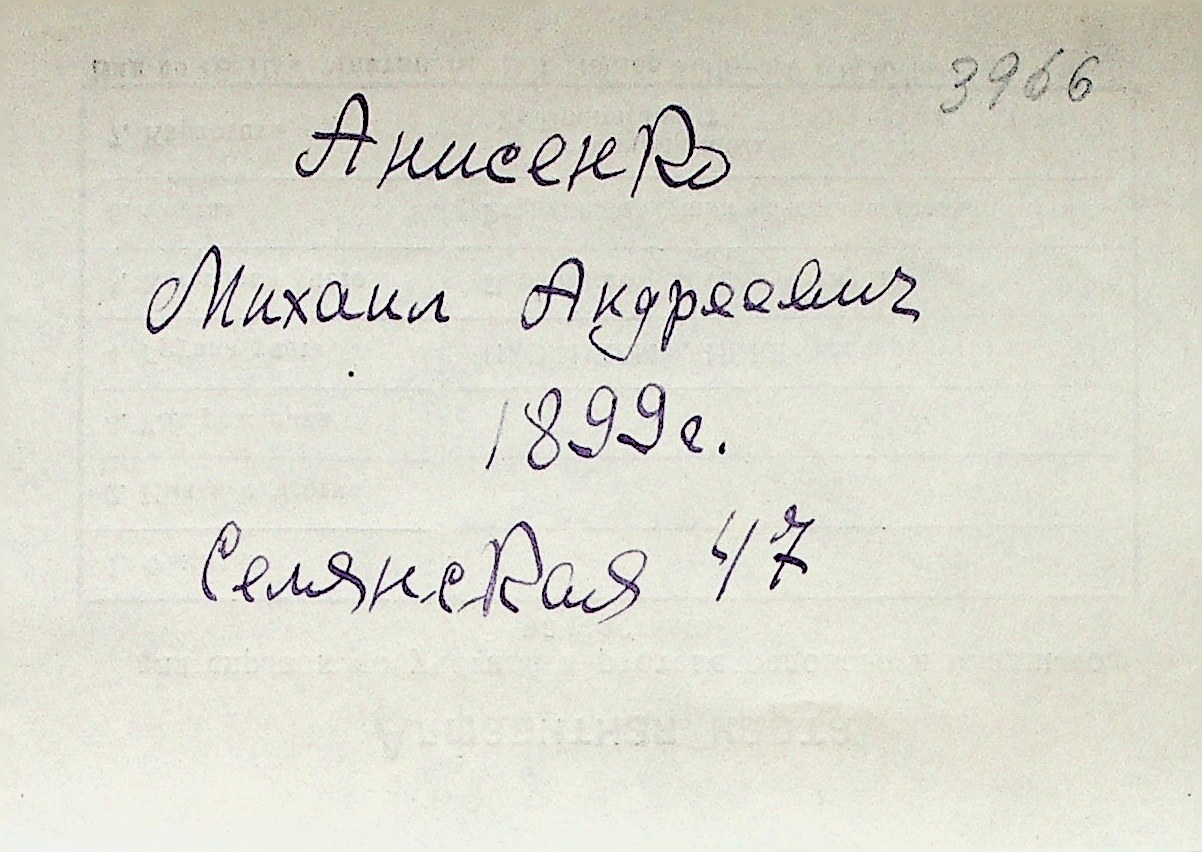 3966
Анисенко
Михаил Андреевич
1899г.
Селянская 47